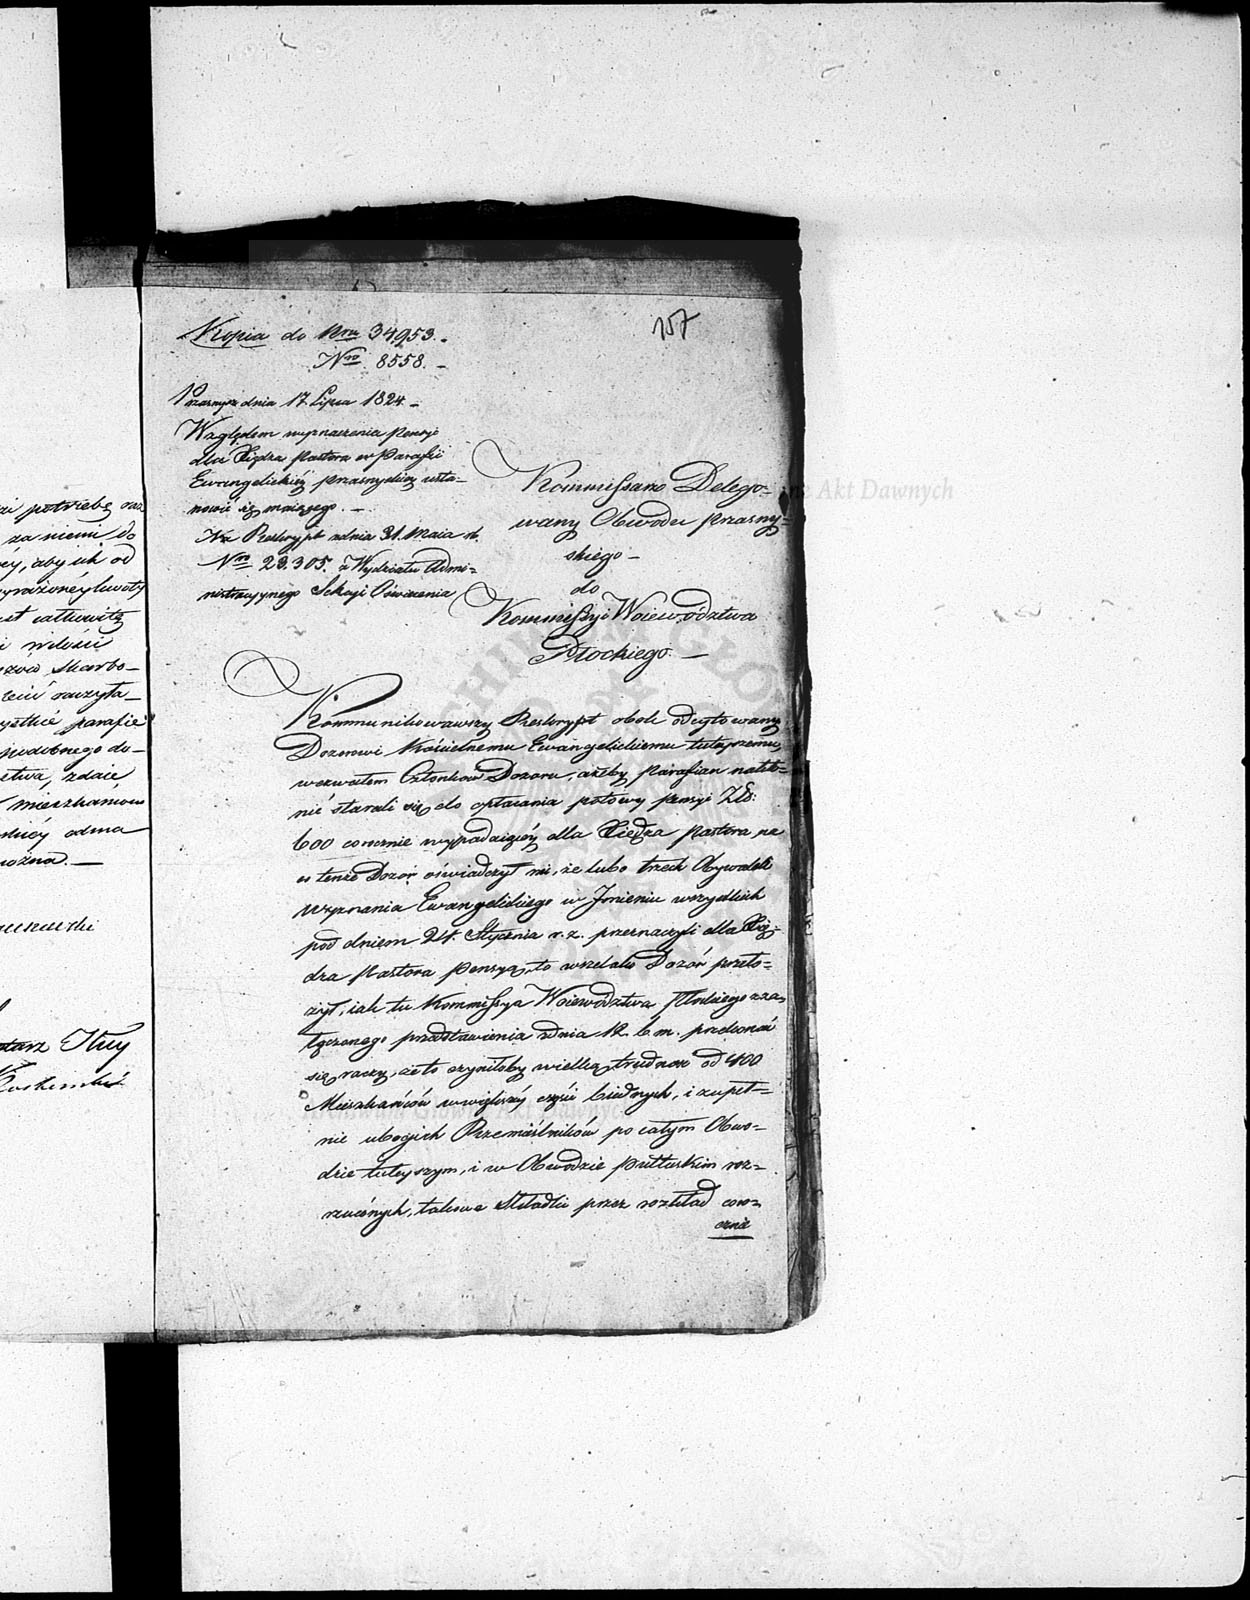 157
Kopia do Nru 34953.
Nro 8558.
Przasnysz dnia 17 Lipca 1824
Względem wyznaczenia Pensyi
dla Xiędza Pastora w Parafii
Ewangelickiéy przasnyskiéy usta-
nowić się maiącego.
Na Reskrypt zdnia 31. Maia rb.
Nro 23.305. z Wydziału Admi-
nistracyjnego Sekcyi Oświecenia
Kommissarz Delego-
wany Obwodu Przasny-
skiego
do
Kommissyi Woiewództwa
Płockiego.
Kommunikowawszy Reskrypt obok odcytowany
Dozorowi Kościelnemu Ewangelickiemu tuteyszemu,
wezwałem Członków Dozoru, ażeby Parafian nakło-
nić starali się do opłacania połowy pensyi Złp:
600 corocznie wypadaiącéy dla Xiędza Pastora, na
co tenże Dozór oświadczył mi, że lubo trzech Obywateli
wyznania Ewangelickiego w Jmieniu wszystkich
pod dniem 24. Stycznia r. z. przeznaczyli dla Xię-
dza Pastora Pensyą, to wszelako Dozór przeło-
żył, iak tu Kommissya Woiewództwa Płockiego z za-
łączonego przedstawienia zdnia 12. b. m. przekonać
się raczy, że to czyniłoby wielką trudność od 400
Mieszkańców wwiększéy części biednych, i zupeł-
nie ubogich Rzemieślników po całym Obwo-
dzie tuteyszym, i w Obwodzie Pułtuskim roz-
rzuconych, takowe Składki przez rozkład coro-
cznie
i potrzebę
za niemi do
aby ich od
parafie
podobnego do-
zdaie
mieszkańców
można.